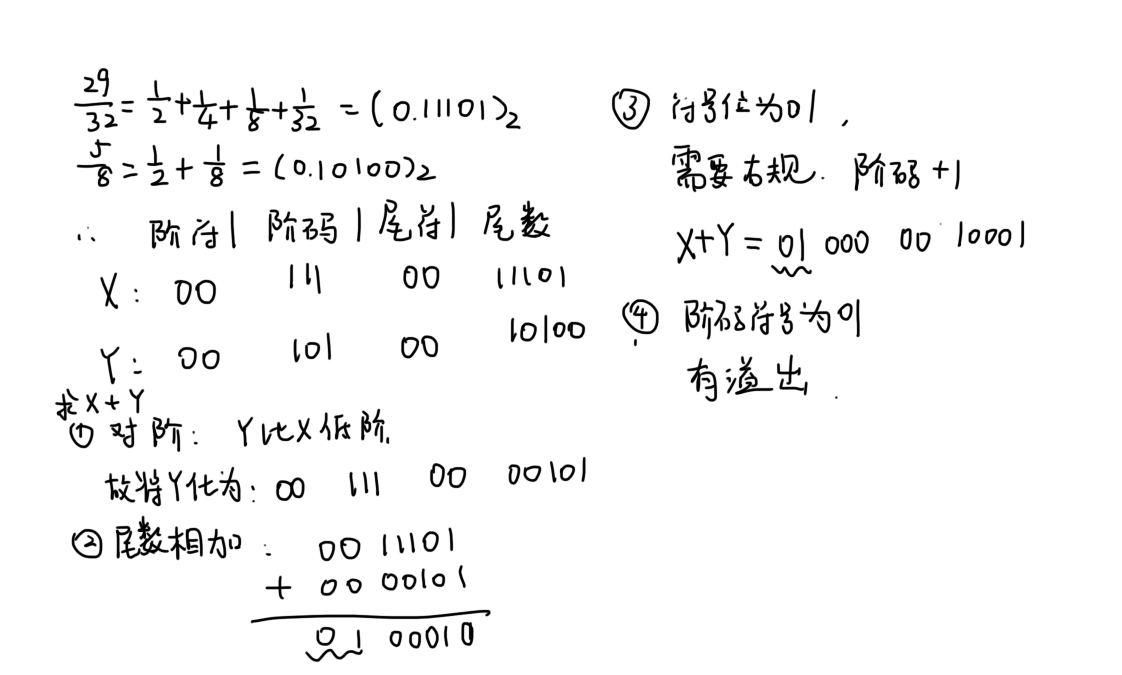 29/32 = 1/2 + 1/4 + 1/8 + 1/32 = (0.11101)₂
5/8 = 1/2 + 1/8 = (0.10100)₂
∴ 阶符 | 阶码 | 尾符 | 尾数
X: 00 111 00 11101
Y: 00 101 00 10100
求X+Y
① 对阶: Y比X低阶,
故将Y化为: 00 111 00 00101
② 尾数相加: 00 11101
+ 00 00101
01 00010
③ 符号位为01,
需要右规. 阶码+1
X+Y = 01 000 00 10001
④ 阶码符号为01
有溢出.